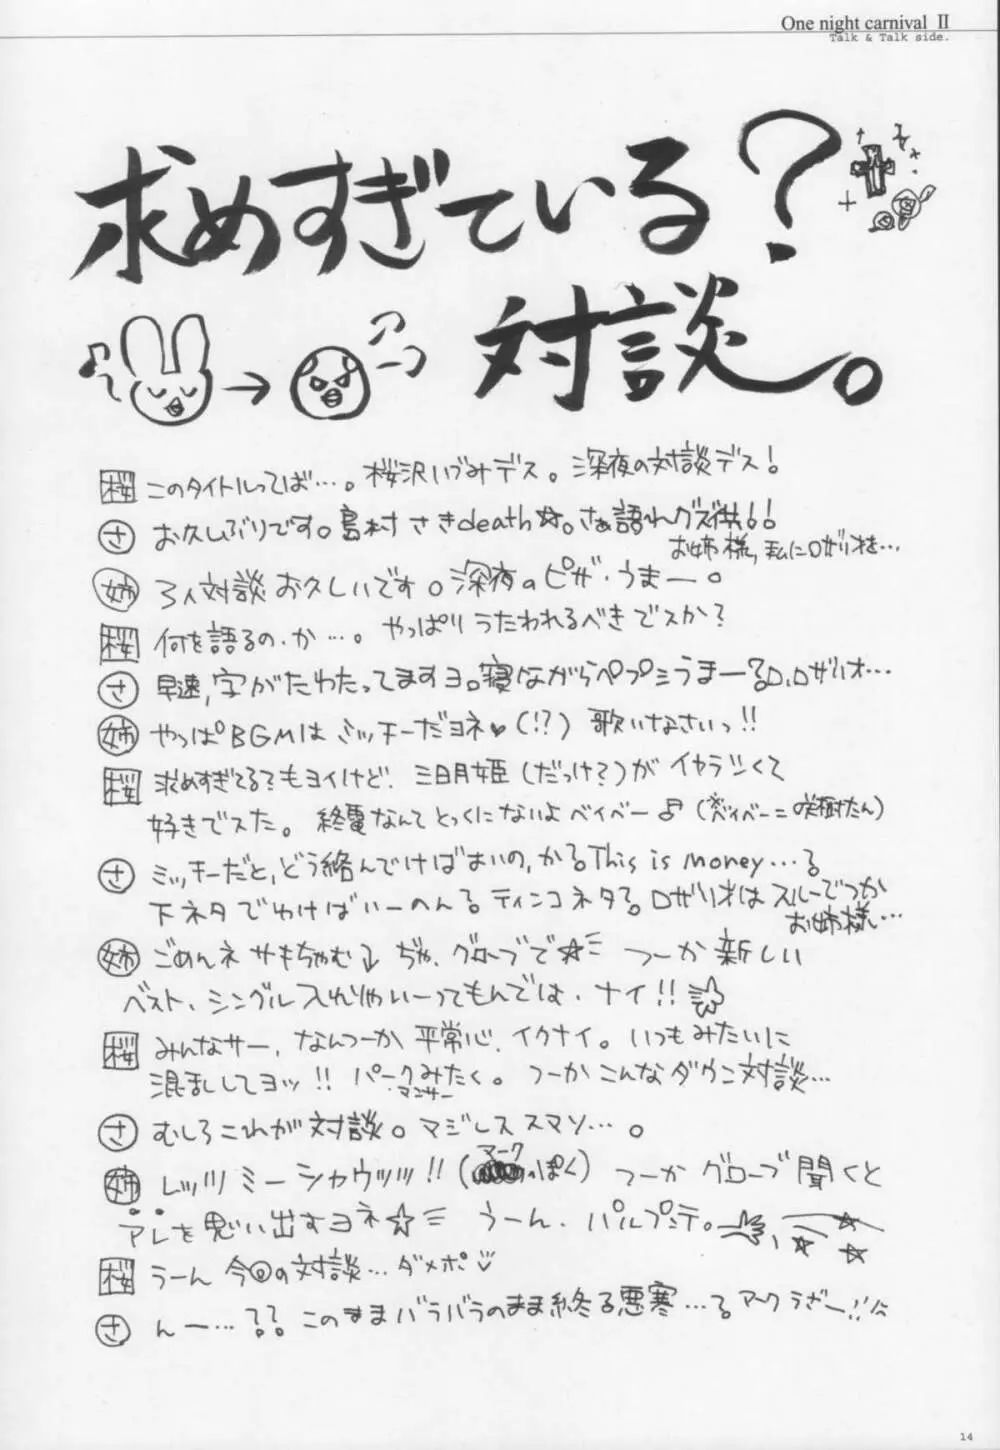 One night carnival Ⅱ
Talk & Talk side.
求めすぎている?
対談。
桜 このタイトルってば…。桜沢いづみデス。深夜の対談デス!
さ お久しぶりです。島村さきdeath☆。さぁ語れグズ共!!
お姉様,私にロザリオを…
姉 3人対談お久しいです。深夜のピザ・うまー。
桜 何を語るの・か…。やっぱりうたわれるべきでスか?
さ 早速,字がたわたってますヨ。寝ながらペプシうまー?ロ、ロザリオ…
姉 やっぱBGMはミッチーだヨネ♥(!?)歌いなさいっ!!
桜 求めすぎてる?もヨイけど、三日月姫(だっけ?)がイヤラシくて
好きでスた。終電なんてとっくにないよベイベー♫(※ベイベー=咲樹たん)
さ ミッチーだと,どう絡んでけばよいの,かるThis is money…る
下ネタでいけばいーのんる。ティンコネタる。ロザリオはスルーでつか
お姉様…
姉 ごめんネサキちゃむ↓ ぢゃ、グローブで☆ つーか新しい
ベスト、シングル入れりゃいーってもんでは、ナイ!!
桜 みんなサー、なんつーか平常心、イクナイ。いつもみたいに
混乱してヨッ!! パークみたく。つーかこんなダウン対談…
マンサー
さ むしろこれが対談。マジレススマソ…。
姉 レッツミーシャウッッ!!(マークっぽく)つーかグローブ聞くと
アレを思い出すヨネ☆ うーん、パルプンテ。
桜 うーん今回の対談…ダメポ
さ んー…??このままバラバラのまま終る悪寒…る